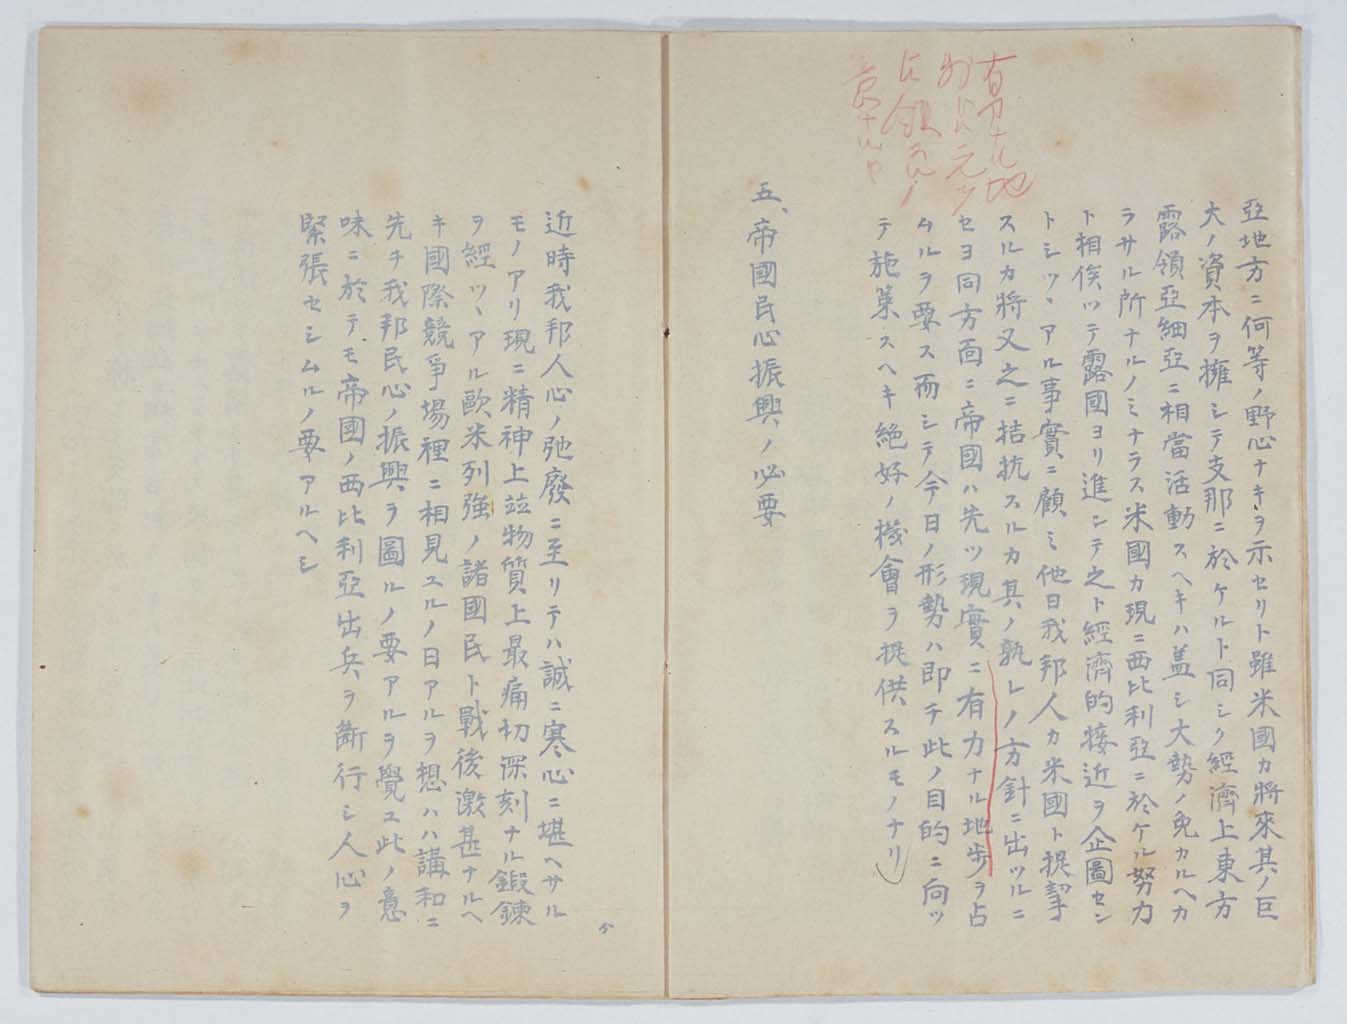 亞地方ニ何等ノ野心ナキヲ示セリト雖米國カ將來其ノ巨
大ノ資本ヲ擁シテ支那ニ於ケルト同シク經濟上東方
露領亞細亞ニ相當活動スヘキハ蓋シ大勢ノ免カルヘカ
ラサル所ナルノミナラス米國カ現ニ西比利亞ニ於ケル努力
ト相俟ツテ露國ヨリ進ンテ之ト經濟的接近ヲ企圖セン
トシツヽアル事實ニ顧ミ他日我邦人カ米國ト提挈
スルカ將又之ニ拮抗スルカ其ノ孰レノ方針ニ出ツルニ
セヨ同方面ニ帝國ハ先ツ現實ニ有力ナル地歩ヲ占
ムルヲ要ス而シテ今日ノ形勢ハ即チ此ノ目的ニ向ツ
テ施策スヘキ絶好ノ機會ヲ提供スルモノナリ
有力ナル地
五、帝國民心振興ノ必要
近時我邦人心ノ弛廢ニ至リテハ誠ニ寒心ニ堪ヘサル
モノアリ現ニ精神上竝物質上最痛切深刻ナル鍛鍊
ヲ經ツヽアル歐米列強ノ諸國民ト戰後激甚ナルヘ
キ國際競爭場裡ニ相見ユルノ日アルヲ想ハハ講和ニ
先チ我邦民心ノ振興ヲ圖ルノ要アルヲ覺ユ此ノ意
味ニ於テモ帝國ノ西比利亞出兵ヲ斷行シ人心ヲ
緊張セシムルノ要アルヘシ